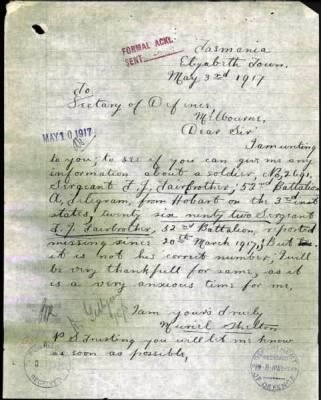 FORMAL ACKT.
SENT
Tasmania
Elizabeth Town.
May 3rd 1917
To
Secretary of Defence,
Melbourne,
Dear Sir
MAY 10 1917
I am writing
to you, to see if you can give me any
information about a soldier, No, 2691.
Sergeant F. J. Fairbrother, 52nd Battalion
A, telegram, from Hobart on the 3rd inst
states, twenty six ninty two Sergeant
F. J. Fairbrother, 52nd Battalion, reported
missing since 20th March 1917, But
it is not his correct number, I will
be very thankfull for same, as it
is a very anxious time for me,
I am yours truely
Muriel Shelton
P S Trusting you will let me know
as soon as possible,
OF DEFENCE